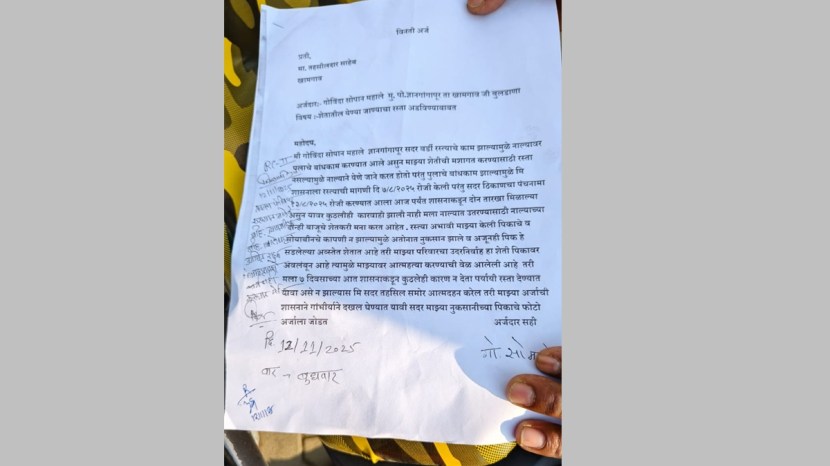 विनंती अर्ज
प्रती,
मा. तहसीलदार साहेब
खामगाव
अर्जदार:- गोविंदा सोपान महाले मु. पो.ज्ञानगंगापूर ता खामगाव जी बुलढाणा
विषय :-शेतातील येण्या जाण्याचा रस्ता अडविण्याबाबत
महोदय,
मी गोविंदा सोपान महाले ज्ञानगंगापूर सदर वर्डी रस्त्याचे काम झाल्यामुळे नाल्यावर
पुलाचे बांधकाम करण्यात आले असुन माझ्या शेतीची मशागत करण्यासाठी रस्ता
नसल्यामुळे नाल्याने येणे जाने करत होतो परंतु पुलाचे बांधकाम झाल्यामुळे मि
शासनाला रस्त्याची मागणी दि ७/८/२०२५ रोजी केली परंतु सदर ठिकाणचा पंचनामा
१३/८/२०२५ रोजी करण्यात आला आज पर्यंत शासनाकडून दोन तारखा मिळाल्या
असुन यावर कुठलीही कारवाही झाली नाही मला नाल्यात उतरण्यासाठी नाल्याच्या
दोन्ही बाजुचे शेतकरी मना करत आहेत . रस्त्या अभावी माझ्या केली पिकाचे व
सोयाबीनचे कापणी न झाल्यामुळे अतोनात नुकसान झाले व अजूनही पिक हे
सडलेल्या अवस्तेत शेतात आहे तरी माझ्या परिवारचा उदरनिर्वाह हा शेती पिकावर
अवलंबून आहे त्यामुळे माझ्यावर आत्महत्या करण्याची वेळ आलेली आहे तरी
मला ७ दिवसाच्या आत शासनाकडून कुठलेही कारण न देता पर्याची रस्ता देण्यात
यावा असे न झाल्यास मि सदर तहसिल समोर आत्मदहन करेल तरी माझ्या अर्जाची
शासनाने गांभीर्याने दखल घेण्यात यावी सदर माझ्या नुकसानीच्या पिकाचे फोटो
अर्जाला जोडत अर्जदार सही
दि. 12/11/2025
वार → बुधवार
गो. सो